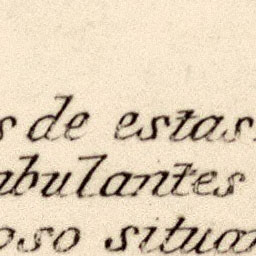 s de estas
mbulantes
oso situar